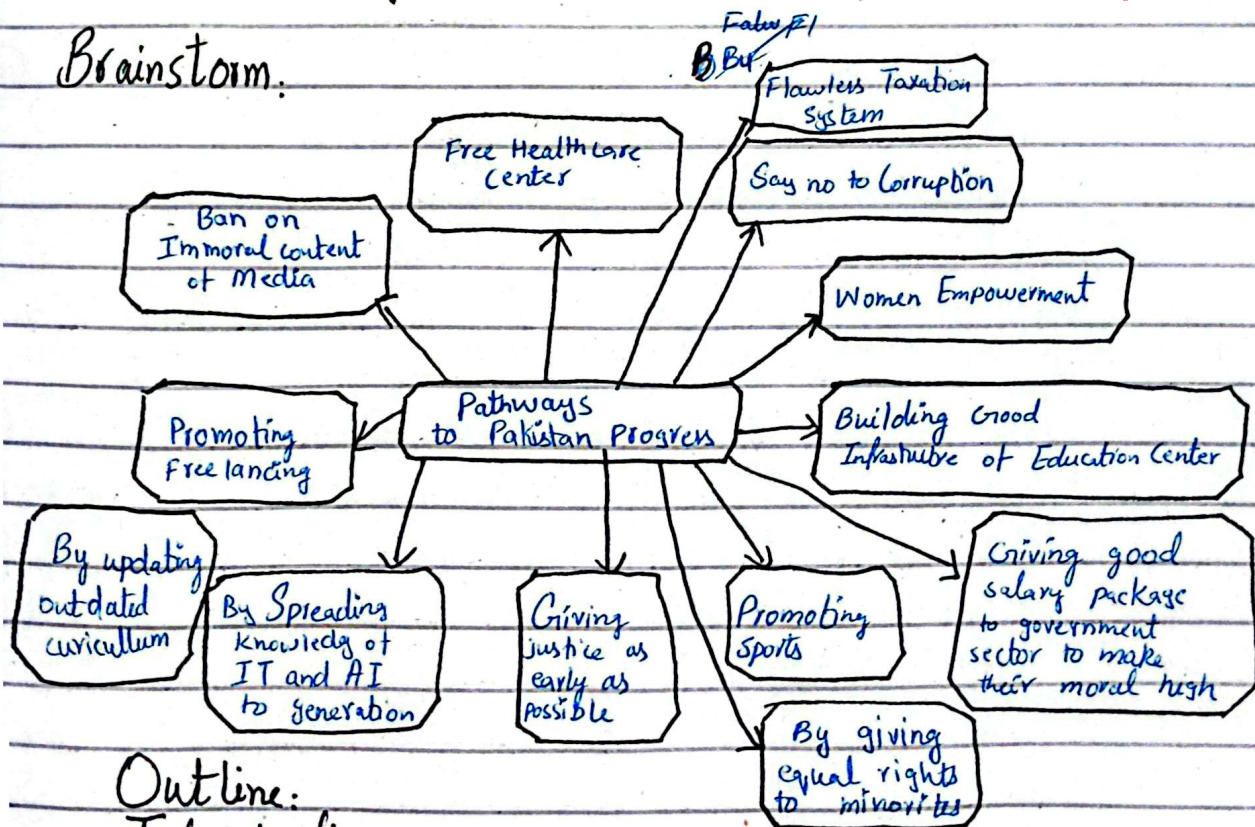 Brainstorm:
Flawless Taxation
System
Free Healthcare
Center
Say no to Corruption
Ban on
Immoral content
of Media
Women Empowerment
Pathways
to Pakistan Progress
Promoting
Free lancing
Building Good
Infrastubre of Education Center
By updating
outdated
curicullum
By Spreading
knowledg of
IT and AI
to generation
Giving
justice as
early as
possible
Promoting
sports
Giving good
salary package
to government
sector to make
their moral high
By giving
equal rights
to minorites
Outline: